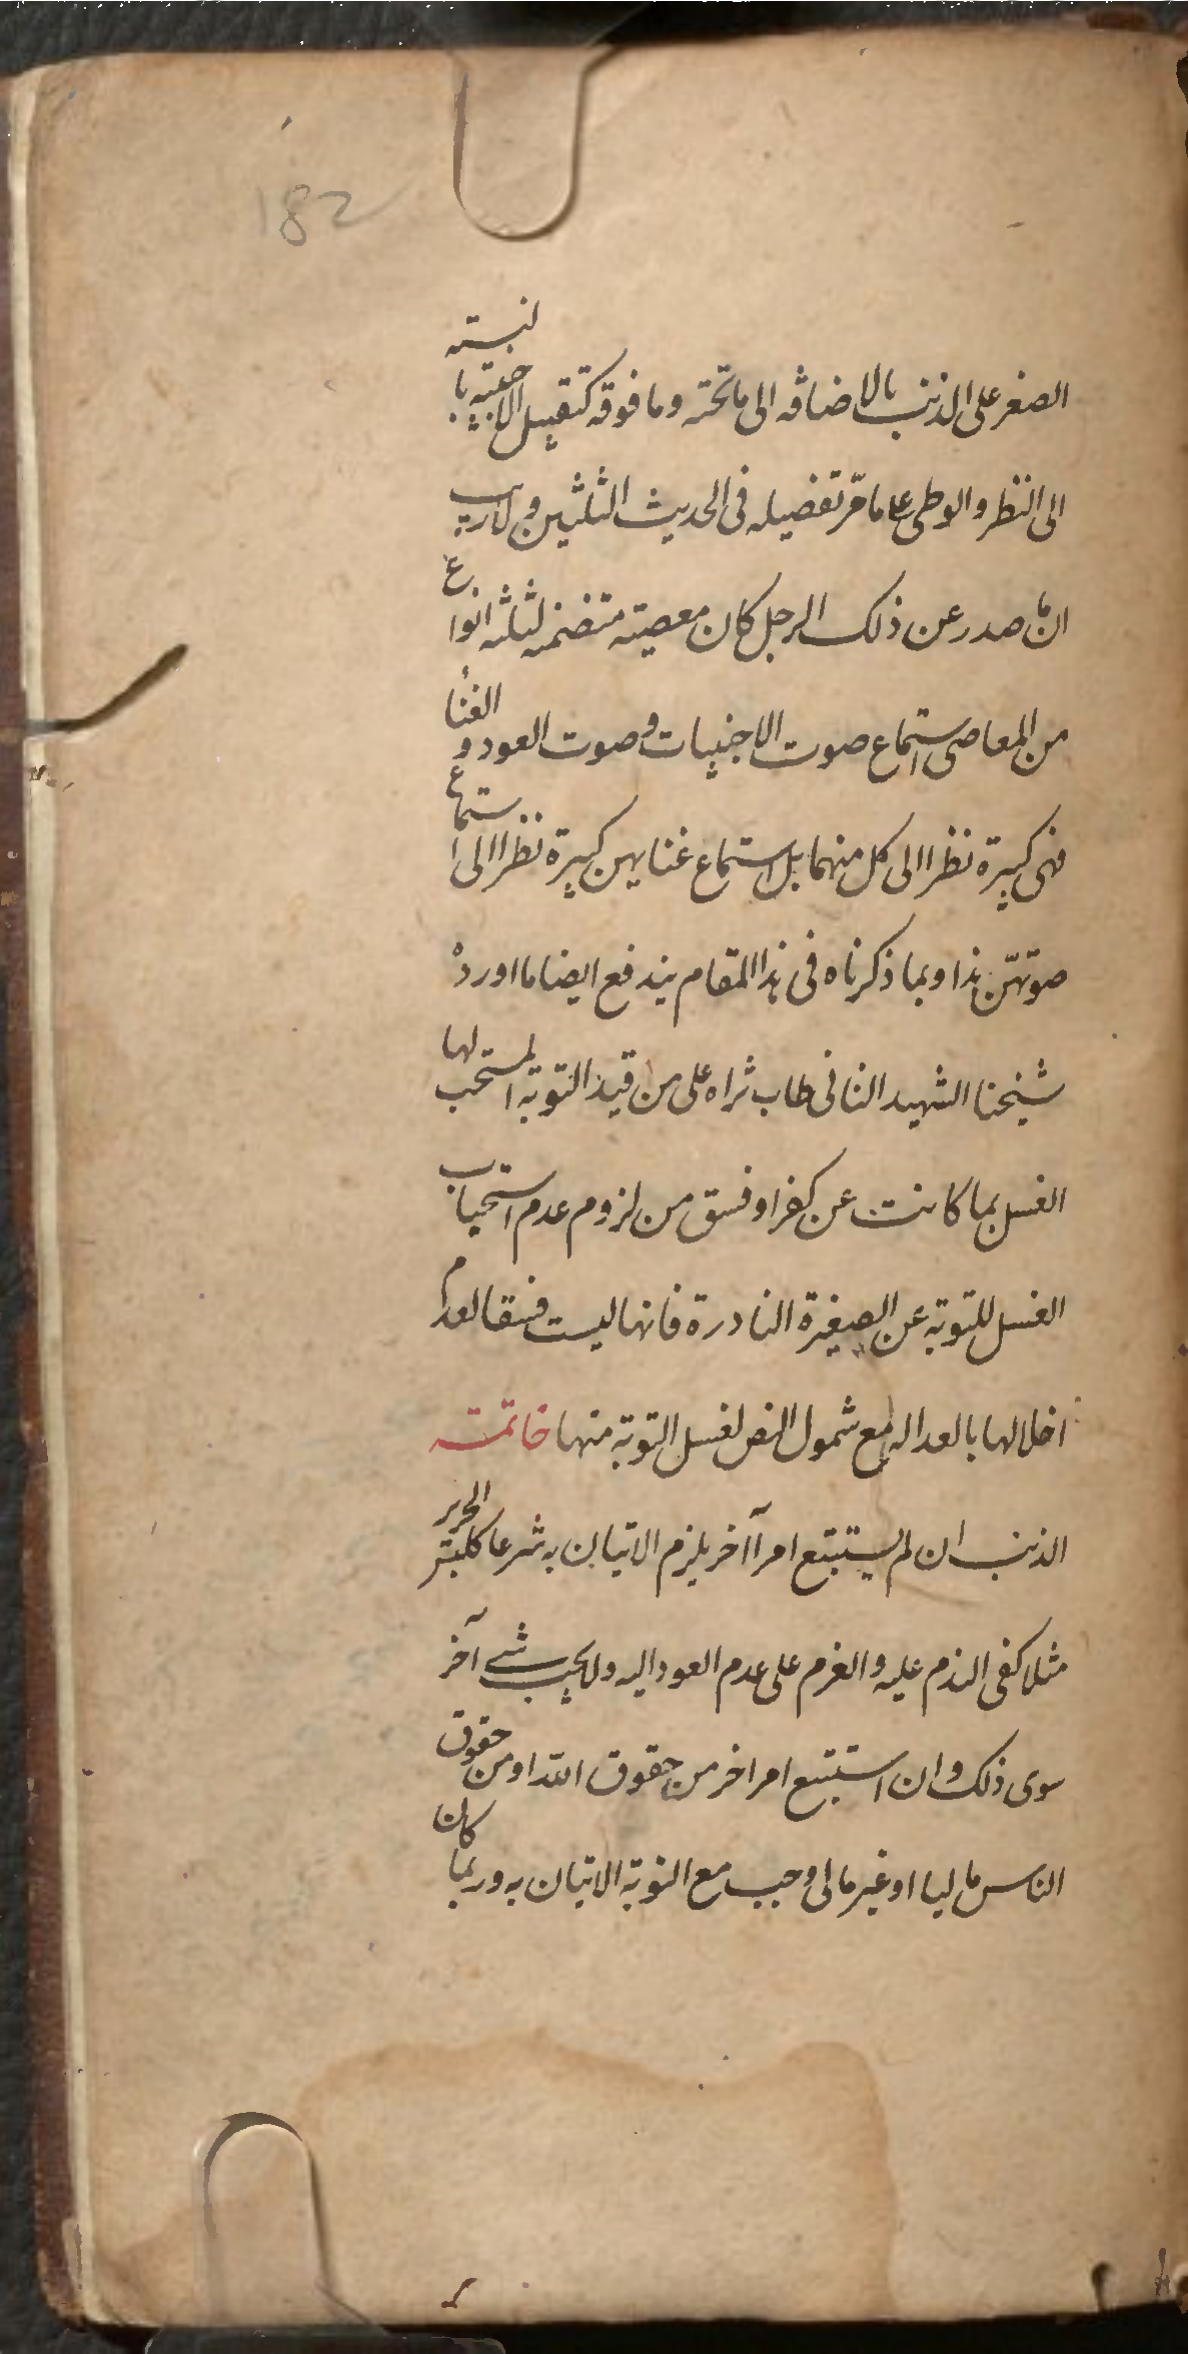 182
الصغر على الذنب بالاضافه الى ما تحته وما فوقه كتقبيل الاجنبيه بالنسبته
الى النظر والوطى على ما مرّ تفصيله فى الحديث الثلثين ولا ريب
ان ما صدر عن ذلك الرجل كان معصيته متضمنه لثلثه انواع
من المعاصى استماع صوت الاجنبيات وصوت العود والغناء
فهى كبيرة نظرا الى كل منهما بل استماع غنايهن كبيرة نظرا الى استماع
صوتهنّ هذا وبما ذكرناه فى هذا المقام يندفع ايضا ما اورده
شيخنا الشهيد الثانى طاب ثراه على من قيد التوبة المستحب لها
الغسل بما كانت عن كفر او فسق من لزوم عدم استحباب
الغسل للتوبة عن الصغيرة النادرة فانها ليست فسقا لعدم
اخلالها بالعداله مع شمول النص لغسل التوبة منها خاتمته
الذنب ان لم يستتبع امرا آخر يلزم الاتيان به شرعا كلبس الحرير
مثلا كفى الندم عليه والعزم على عدم العود اليه ولا يجب شىء آخر
سوى ذلك وان استتبع امرا خر من حقوق الله او من حقوق
الناس ماليا او غير مالى وجب مع التوبة الاتيان به وربما كان